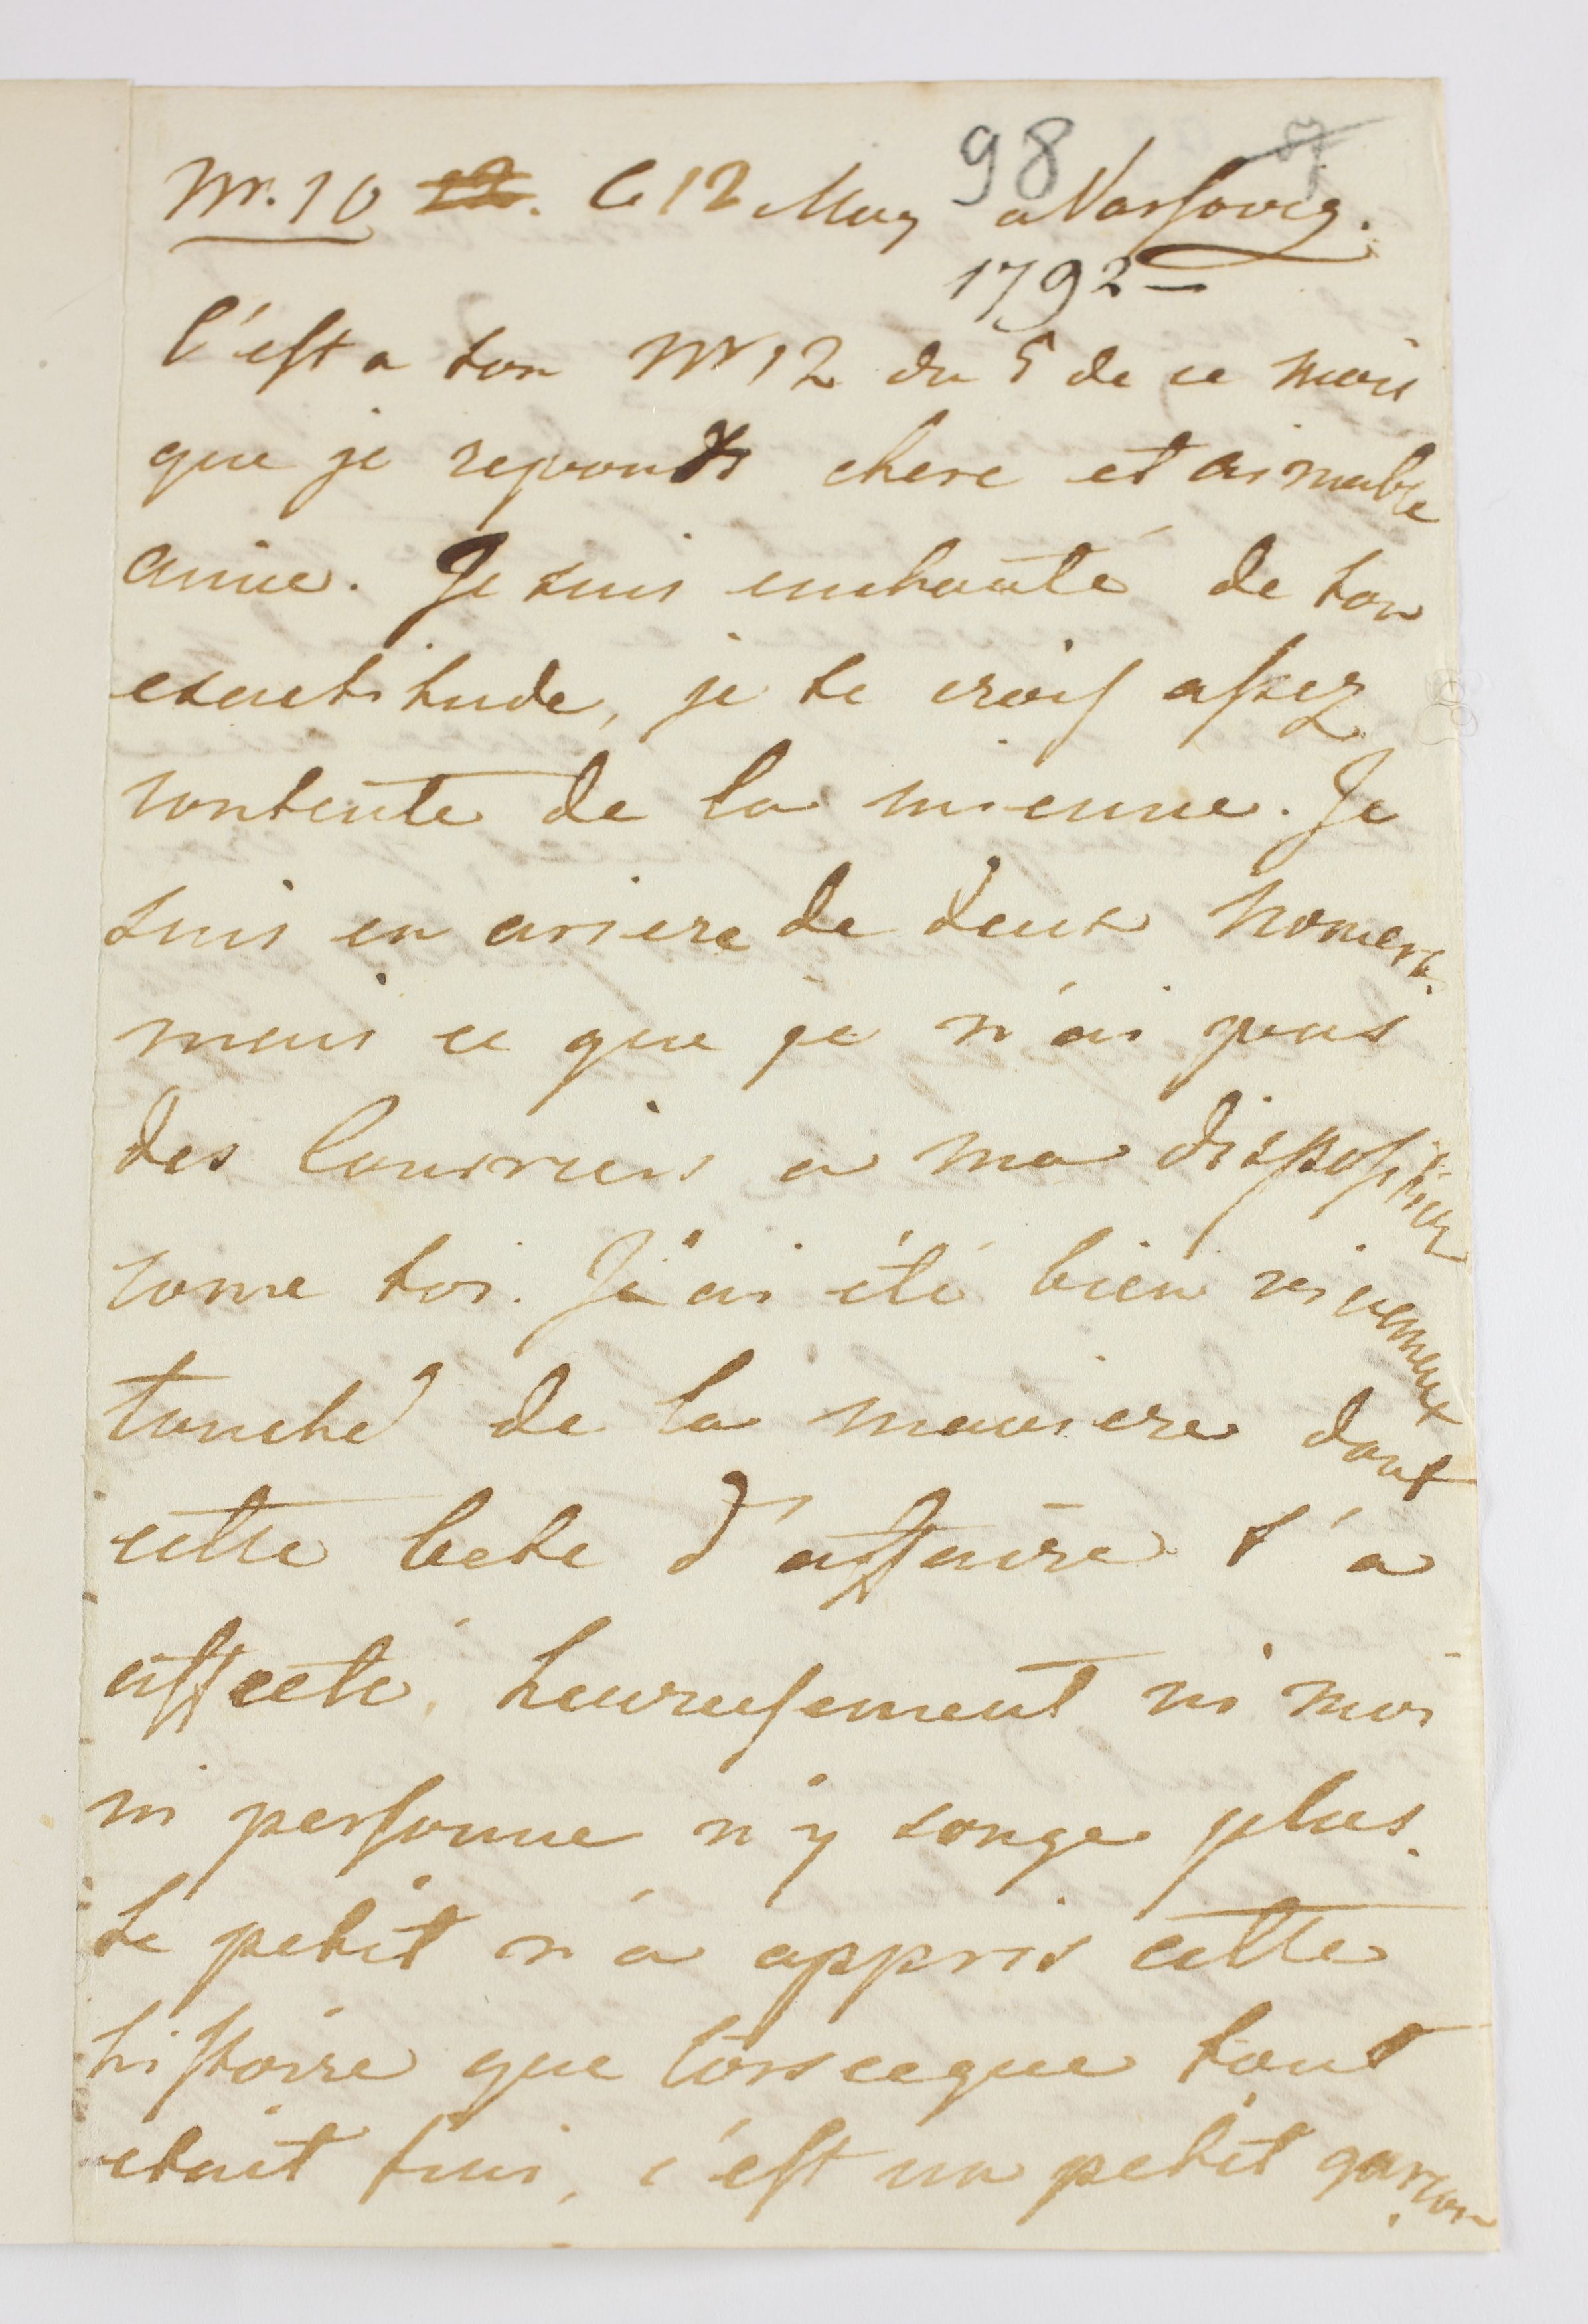 98
Nr. 10 12. Ce 12 May a Varsovie.
1792 —
C'est a ton Nr 12 du 5 de ce mois
que je reponds chere et aimable
amie. Je suis enchanté de ton
exactitude, je te crois assez
contente de la mienne. Je
suis en ariere de deux nomers.
mais ce que je n'ai pas
des Courriers a ma disposition
come toi. J'ai été bien vivement
touché de la maniere dont
cette bete d'affaire t'a
affecté, heureusement ni moi
ni personne n'y songe plus.
Le petit n'a appris cette
histoire que lorsceque tout
etait fini, c'est un petit garçon